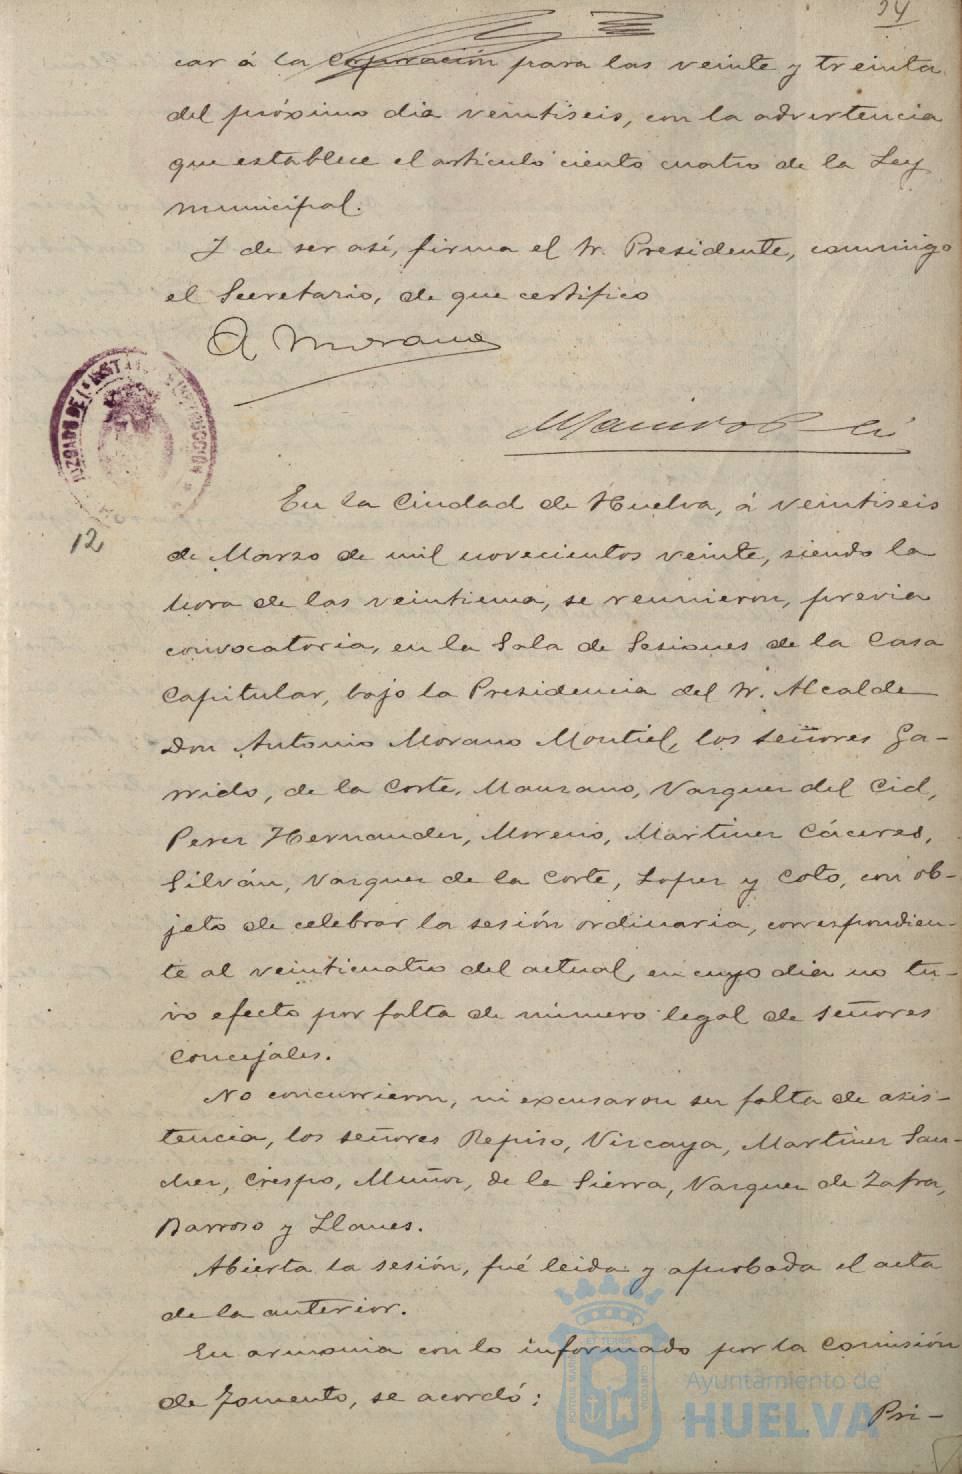 34
car á la Corporación para las veinte y treinta
del próximo dia veintiseis, con la advertencia
que establece el articulo ciento cuatro de la Ley
municipal.
Y de ser así, firma el Sr. Presidente, conmigo
el Secretario, de que certifico
A Morano
JUZGADO DE 1ª INSTANCIA E INSTRUCCIÓN
12
En la Ciudad de Huelva, á veintiseis
de Marzo de mil novecientos veinte, siendo la
hora de las veintiuna, se reunieron, previa
convocatoria, en la Sala de Sesiones de la Casa
Capitular, bajo la Presidencia del Sr. Alcalde
Don Antonio Morano Montiel, los señores Ga-
rrido, de la Corte, Manzano, Vazquez del Cid,
Perez Hernandez, Moreno, Martinez Cáceres,
Silván, Vazquez de la Corte, Lopez y Coto, con ob-
jeto de celebrar la sesión ordinaria, correspondien-
te al veinticuatro del actual, en cuyo dia no tu-
vo efecto por falta de número legal de señores
Concejales.
No concurrieron, ni excusaron su falta de asis-
tencia, los señores Repiso, Vizcaya, Martinez San-
chez, Crespo, Muñoz, de la Sierra, Vazquez de Zafra,
Barroso y Llanes.
Abierta la sesión, fué leida y aprobada el acta
de la anterior.
En armonia con lo informado por la Comisión
de Fomento, se acordó:
Pri-
Ayuntamiento de
HUELVA